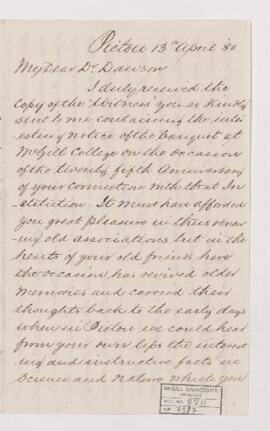 Pictou 13th April '80
My Dear Dr Dawson
I duly received the
Copy of the "Witness" you so kindly
sent to me containing the inter
esting notice of the Banquet at
McGill College on the occasion
of the twenty fifth Anniversary
of your connection with that In
stitution. It must have afforded
you great pleasure in thus renew
ing old associations but in the
hearts of your old friends here
the occasion has revived older
memories and carried their
thoughts back to the early days
when in Pictou we could hear
from your own lips the interest
ing and instructive facts in
Science and Nature which you
McGILL UNIVERSITY
ARCHIVES
ACC. NO.
REF.